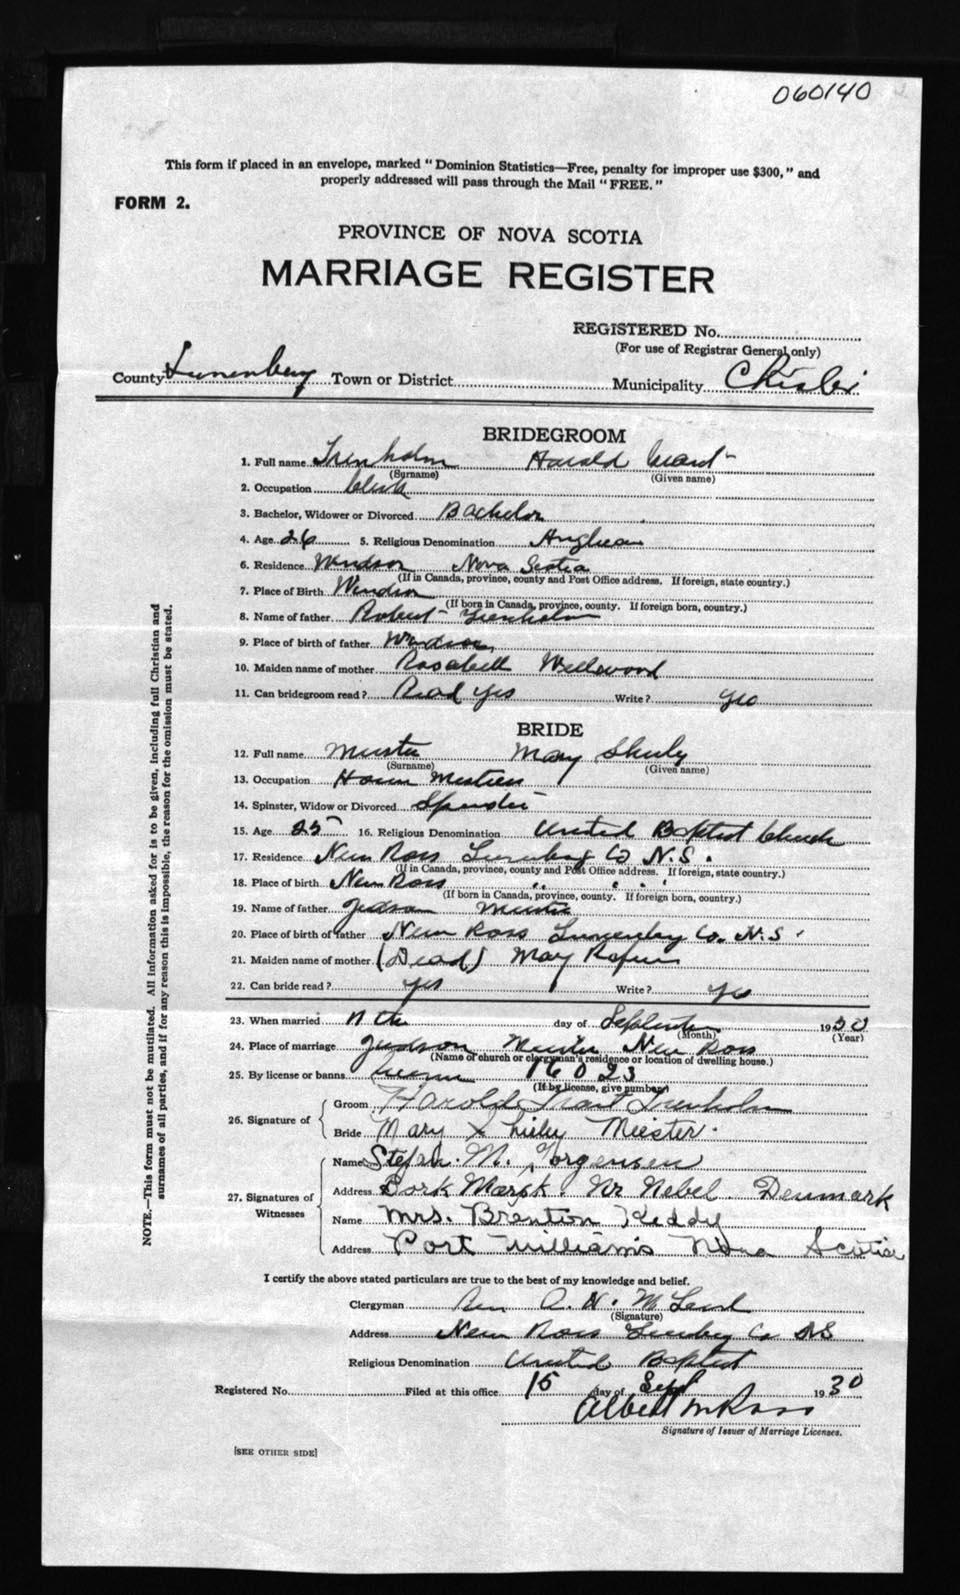 060140
This form if placed in an envelope, marked "Dominion Statistics—Free, penalty for improper use $300," and
properly addressed will pass through the Mail "FREE."
FORM 2.
PROVINCE OF NOVA SCOTIA
MARRIAGE REGISTER
REGISTERED No.
(For use of Registrar General only)
County Lunenburg Town or District Municipality Chester
BRIDEGROOM
1. Full name Trenholm Harold Grant
(Surname) (Given name)
2. Occupation Clerk
3. Bachelor, Widower or Divorced Bachelor
4. Age 26 5. Religious Denomination Anglican
6. Residence Windsor Nova Scotia
(If in Canada, province, county and Post Office address. If foreign, state country.)
7. Place of Birth Windsor
(If born in Canada, province, county. If foreign born, country.)
8. Name of father Robert Trenholm
9. Place of birth of father Windsor
10. Maiden name of mother Rosabell Wellwood
11. Can bridegroom read? Read yes Write? yes
BRIDE
12. Full name Meister Mary
(Surname) (Given name)
13. Occupation House
14. Spinster, Widow or Divorced Spinster
15. Age 25 16. Religious Denomination United Baptist Church
17. Residence New Ross Lunenburg Co N.S.
(If in Canada, province, county and Post Office address. If foreign, state country.)
18. Place of birth New Ross " " " "
(If born in Canada, province, county. If foreign born, country.)
19. Name of father Judson Meister
20. Place of birth of father New Ross Lunenburg Co. N.S.
21. Maiden name of mother (Dead) May
22. Can bride read? yes Write? yes
23. When married 11th day of September 1930
(Month) (Year)
24. Place of marriage Judson Meister New Ross
(Name of church or clergyman's residence or location of dwelling house.)
25. By license or banns 16023
(If by license, give number)
26. Signature of Groom Harold Grant Trenholm
Bride Mary Meister.
27. Signatures of Witnesses
Name Stefan M. Jorgensen
Address Bork Mark. Nr Nebel. Denmark
Name Mrs. Brenton Keddy
Address Port Williams Nova Scotia
I certify the above stated particulars are true to the best of my knowledge and belief.
Clergyman Rev A. N.
(Signature)
Address New Ross Lunenburg Co NS
Religious Denomination United Baptist
Registered No. Filed at this office 15 day of Sept 1930
Albert M Ross
Signature of Issuer of Marriage Licenses.
[SEE OTHER SIDE]
NOTE.—This form must not be mutilated. All information asked for is to be given, including full Christian and
surnames of all parties, and if for any reason this is impossible, the reason for the omission must be stated.